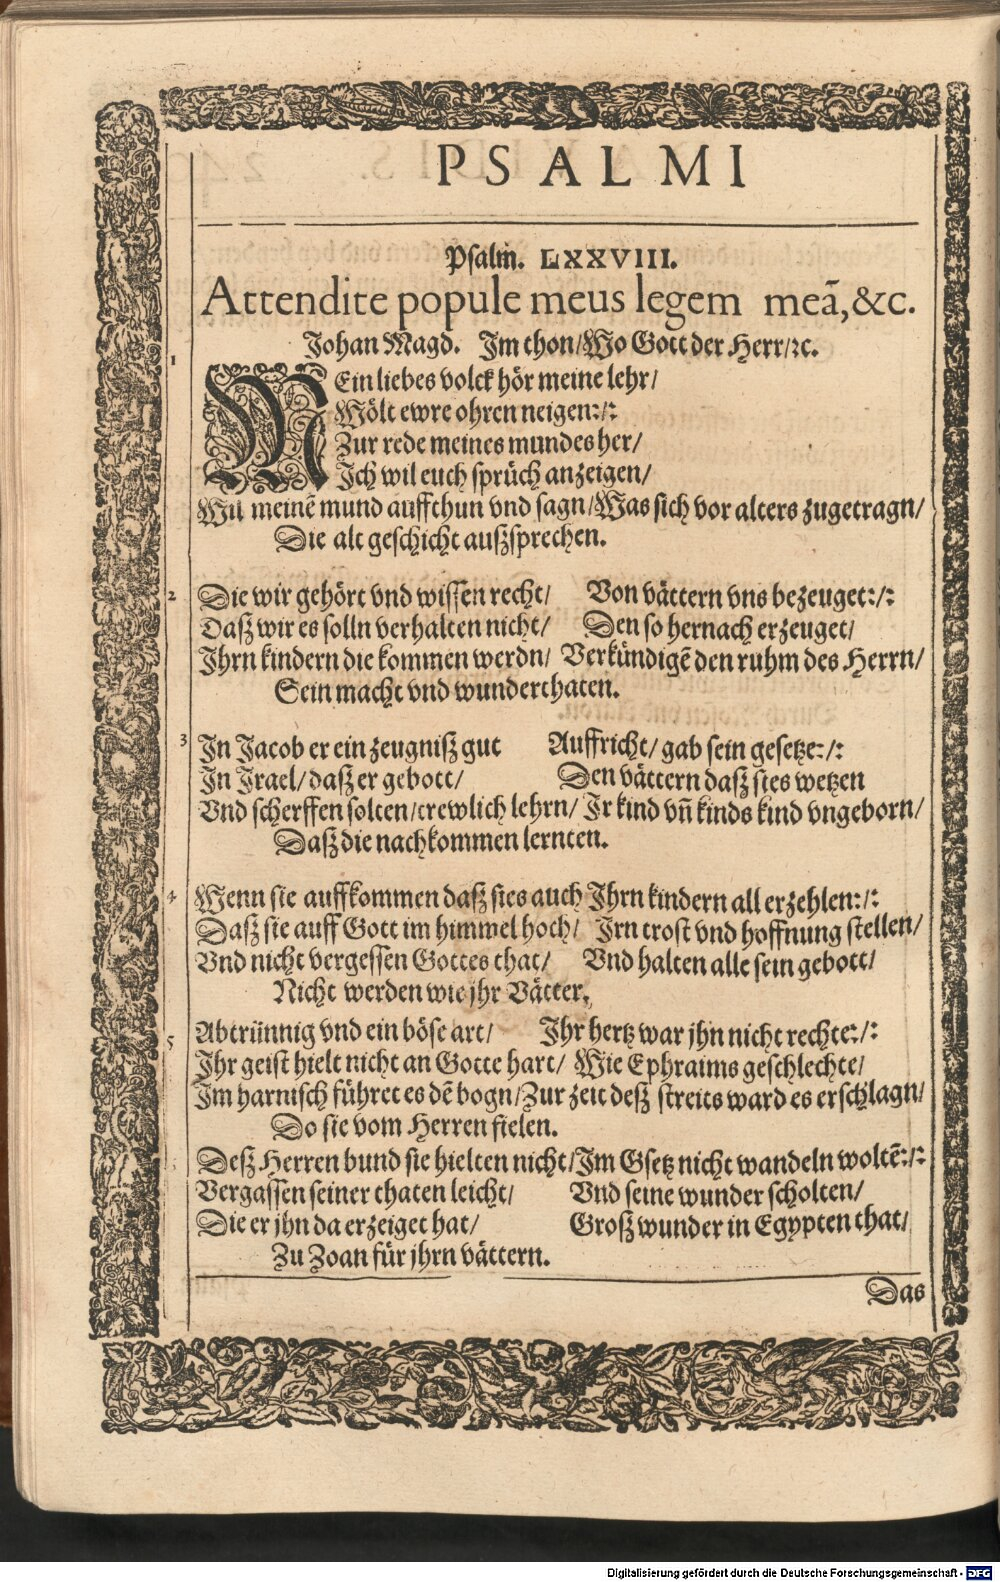 PSALMI
Psalm. LXXVIII.
Attendite popule meus legem meā, &c.
Johan Magd. Im thon/Wo Gott der Herr/ꝛc.
1
MEin liebes volck hör meine lehr/
Wölt ewre ohren neigen:/:
Zur rede meines mundes her/
Ich wil euch sprüch anzeigen/
Wil meinē mund auffthun vnd sagn/Was sich vor alters zugetragn/
Die alt geschicht außsprechen.
2 Die wir gehört vnd wissen recht/ Von vättern vns bezeuget:/:
Daß wir es solln verhalten nicht/ Den so hernach erzeuget/
Ihrn kindern die kommen werdn/ Verkündigē den ruhm des Herrn/
Sein macht vnd wunderthaten.
3 In Jacob er ein zeugniß gut Auffricht/ gab sein gesetze:/:
In Israel/ daß er gebott/ Den vättern daß sies wetzen
Vnd scherffen solten/trewlich lehrn/ Ir kind vn̄ kinds kind vngeborn/
Daß die nachkommen lernten.
4 Wenn sie auffkommen daß sies auch Ihrn kindern all erzehlen:/:
Daß sie auff Gott im himmel hoch/ Irn trost vnd hoffnung stellen/
Vnd nicht vergessen Gottes that/ Vnd halten alle sein gebott/
Nicht werden wie jhr Vätter.
5 Abtrünnig vnd ein böse art/ Ihr hertz war jhn nicht rechte:/:
Ihr geist hielt nicht an Gotte hart/ Wie Ephraims geschlechte/
Im harnisch führet es dē bogn/Zur zeit deß streits ward es erschlagn/
Do sie vom Herren fielen.
Deß Herren bund sie hielten nicht/Im Gsetz nicht wandeln woltē:/:
Vergassen seiner thaten leicht/ Vnd seine wunder scholten/
Die er jhn da erzeiget hat/ Groß wunder in Egypten that/
Zu Zoan für jhrn vättern.
Das
Digitalisierung gefördert durch die Deutsche Forschungsgemeinschaft - DFG